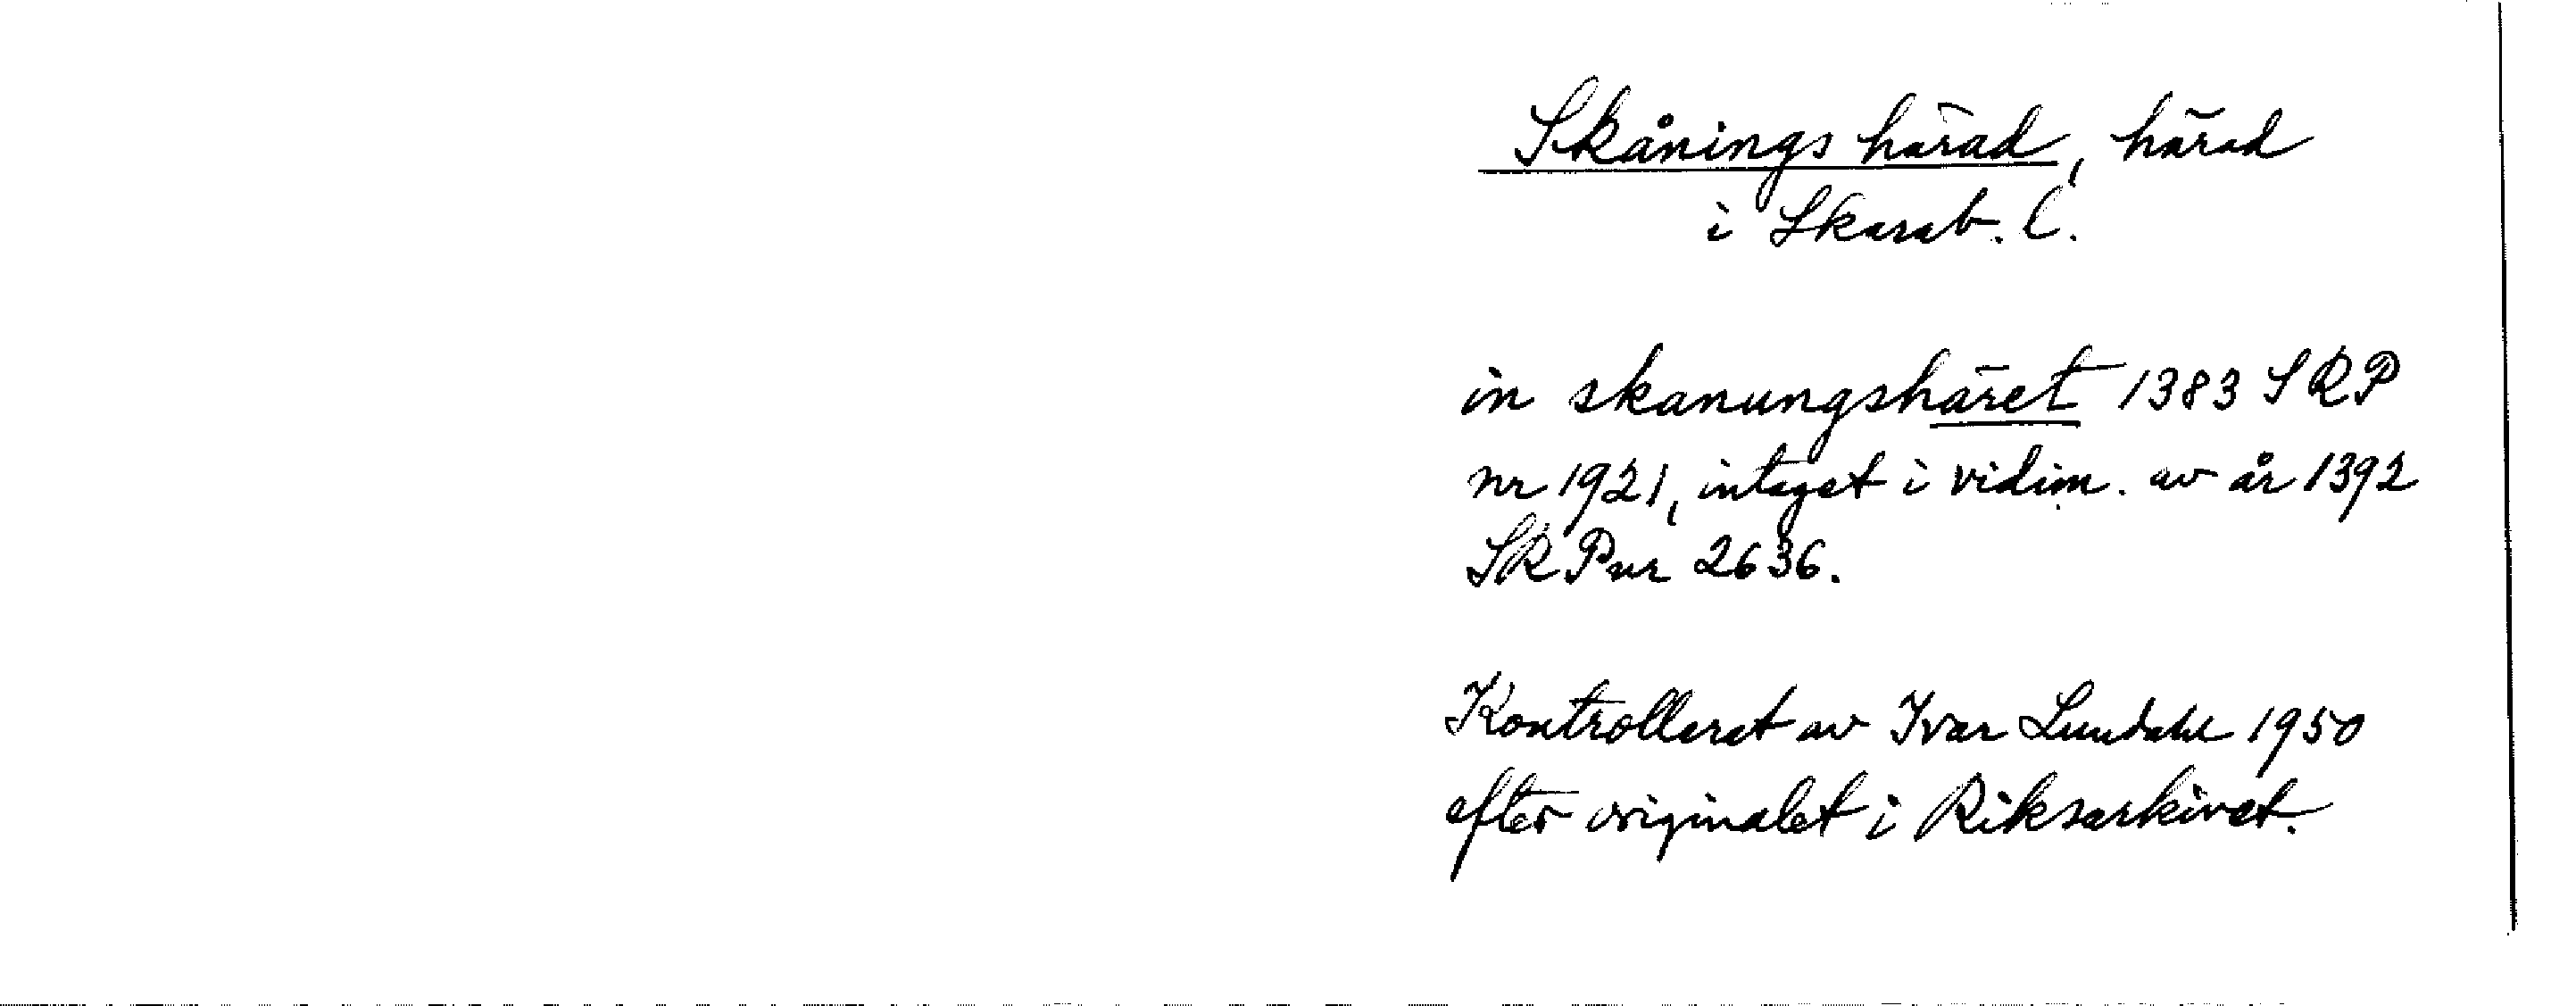 Skånings härad, härad
i Skarab. l.
in skanungshäret 1383 SRP
nr 1921, intaget i vidim. av år 1392
SRP nr 2636.
Kontrollerat av Ivar Lundahl 1950
efter originalet i Riksarkivet.